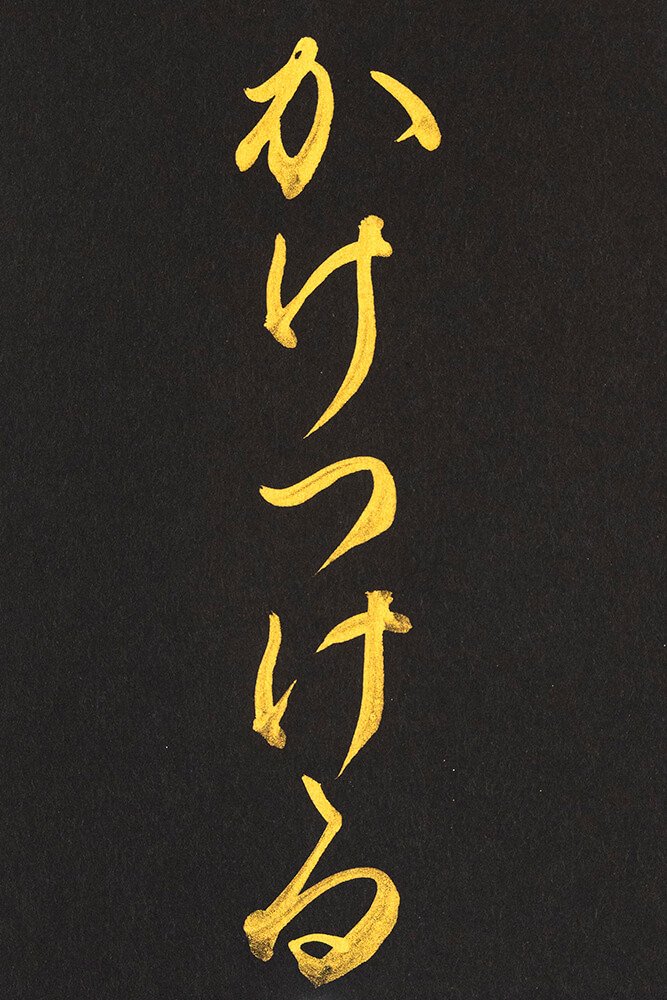 かけつける